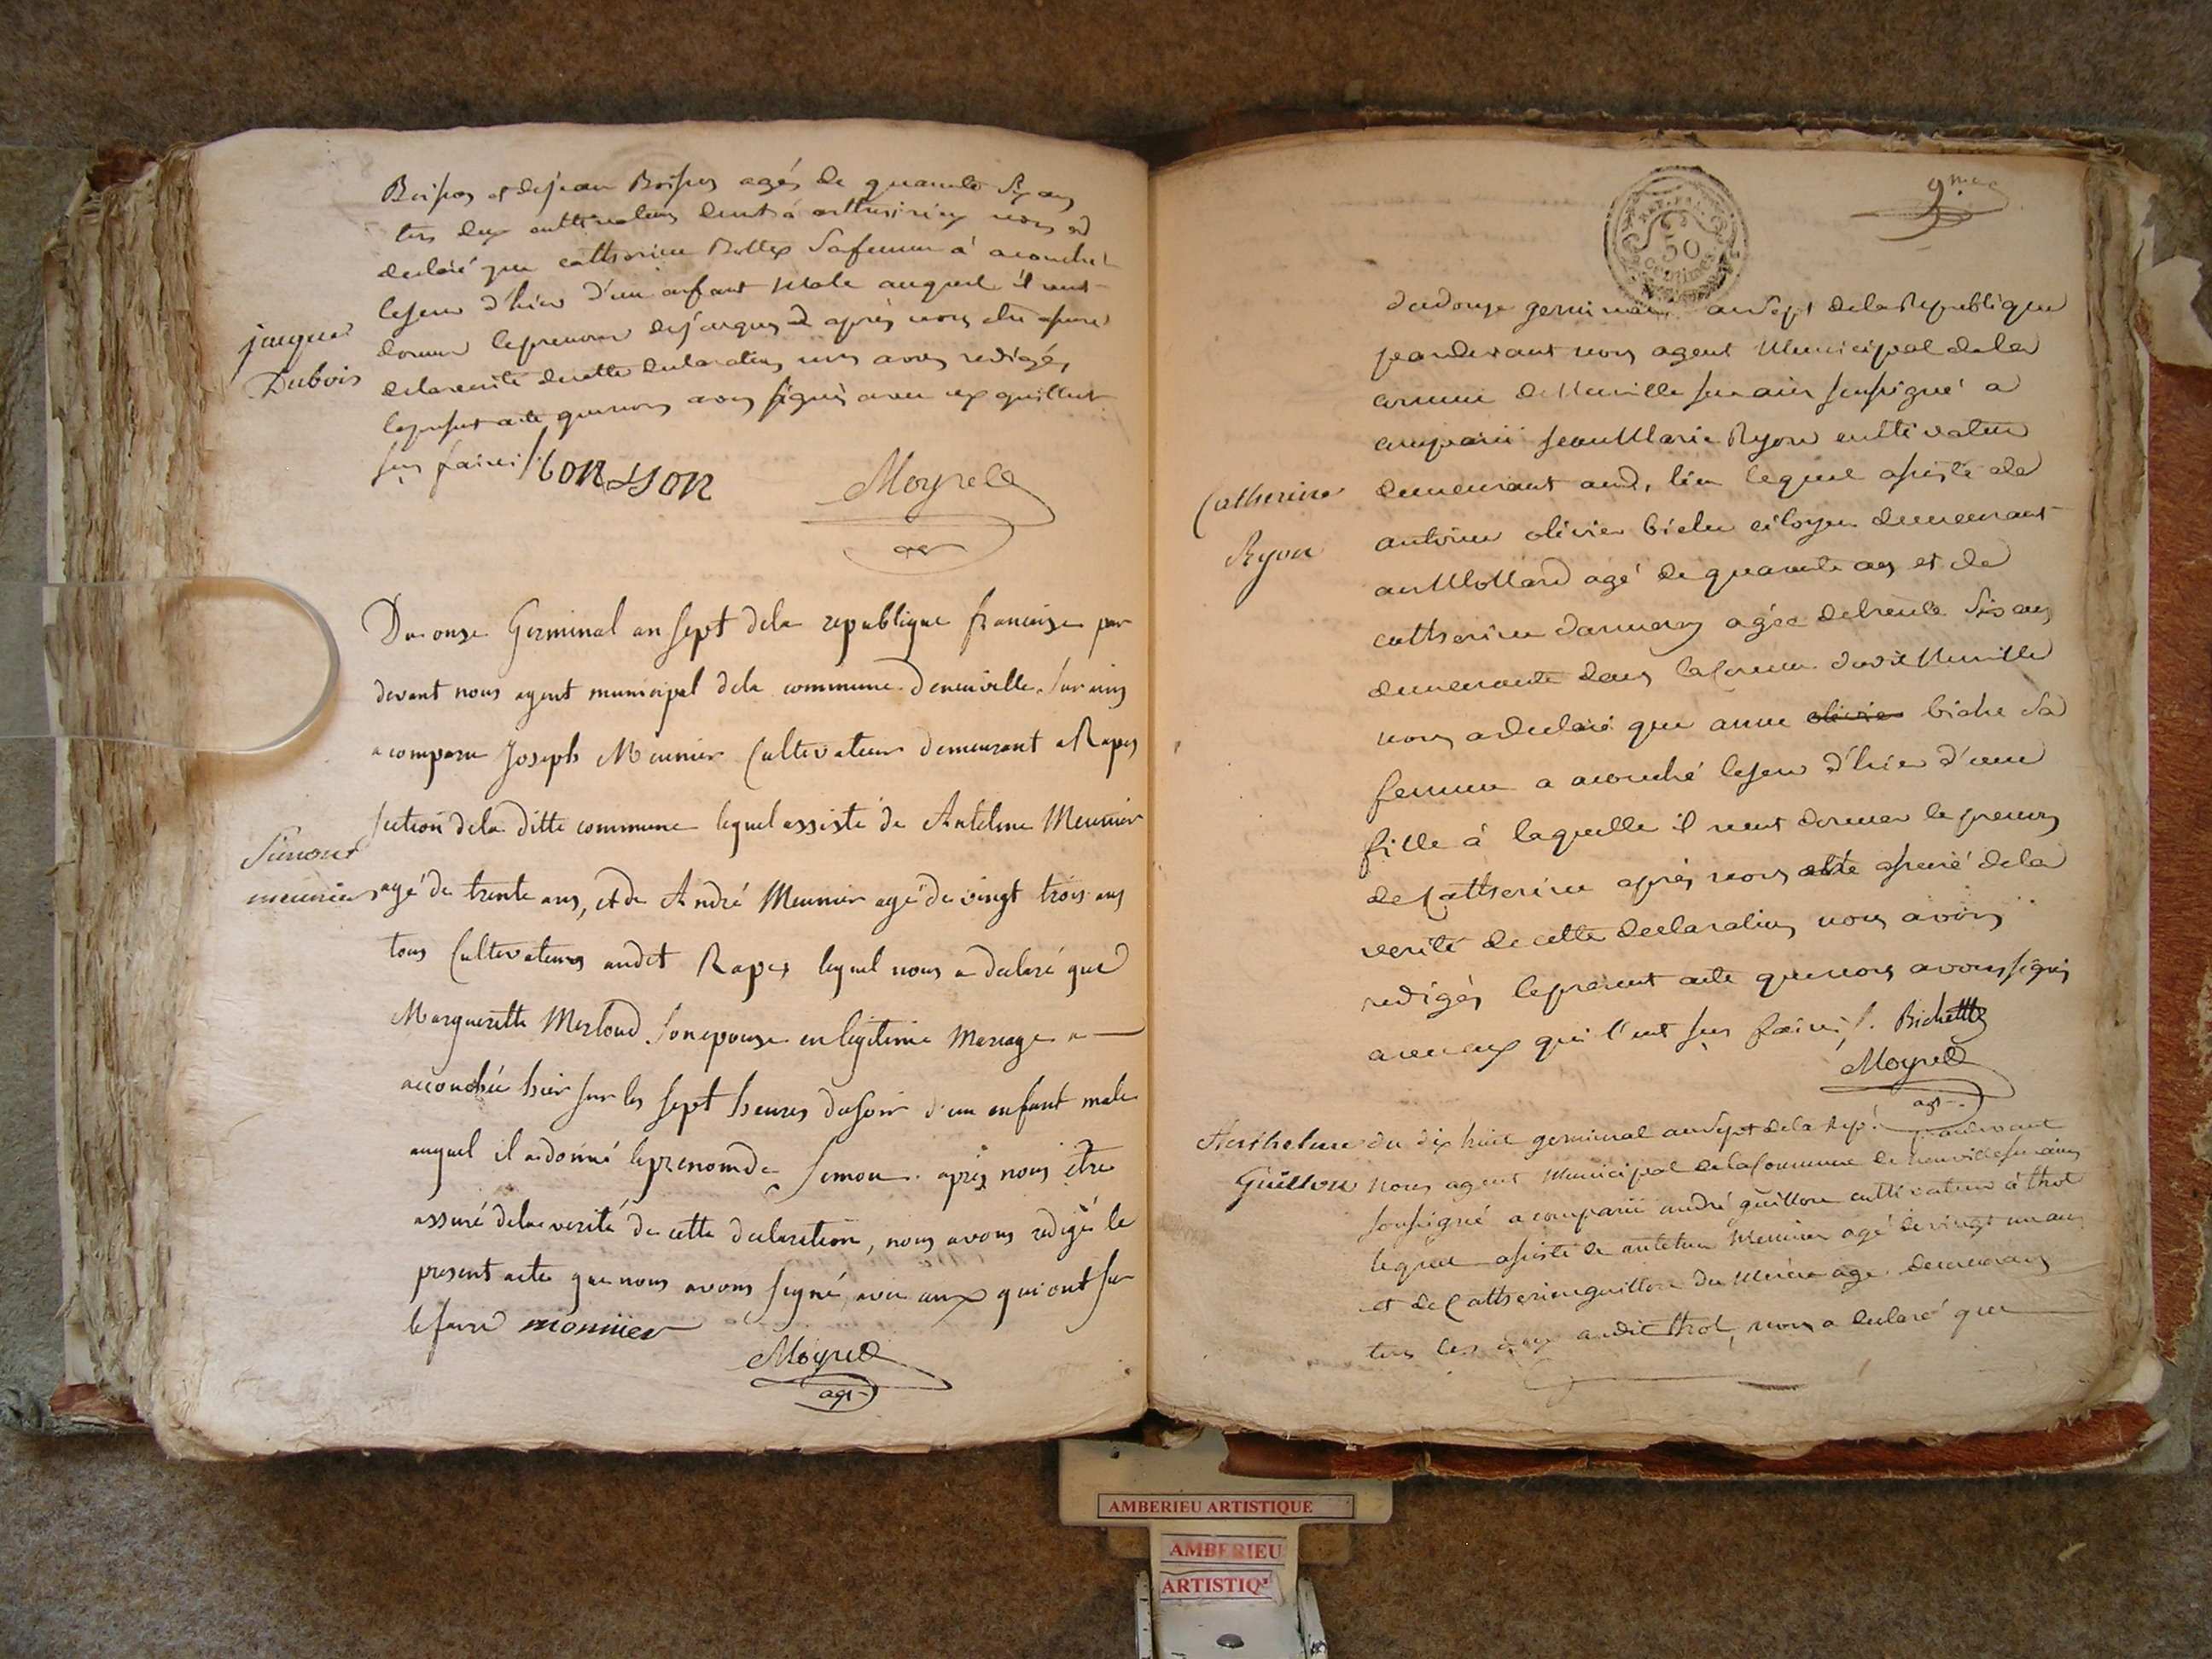 de jean agés de quarante six ans
tous deux cultivateurs nous a
declaré que catherine sa femme à acouché
le jour d'hier d'un enfant Male auquel il veut
donner le prenom de jacques après nous etre assuré
jacques
Dubois
de la verité de cette declaration nous avons redigé,
le present acte que nous avons signés avec ceux qui l'ont
sus faire /.
Moyret
agt
Du onze Germinal an sept dela republique francaise par
devant nous agent municipal dela commune deneuville sur ains
a comparu Joseph Meunier Cultivateur demeurant a Rapes
section dela ditte commune lequel assisté de Antelme Meunier
Simond
meunier
agé de trente ans, et de André Meunier agé de vingt trois ans
tous Cultivateurs audit Rapes lequel nous a declaré que
Margueritte Merloud son epouse en legitime Mariage a
accouchée hier sur les sept heures du soir d'un enfant male
auquel il a donné le prenom de Simon. après nous etre
assuré dela verité de cette declaration, nous avons redigé le
present acte que nous avons signé, avec aux qui ont su
le faire monnier
Moyret
agt
9me
REP. FRA.
50
CENTIMES
du douze germinal an sept dela Republique
pardevant nous agent Municipal dela
comune de Neuville sur ain sousigné a
comparii jean Marie Ryon cultivateur
Catherine
Ryon
demeurant aud. lieu lequel assisté de
antoine olivier biche citoyen demeurant
au Mollard agé de quarante ans et de
catherine agée de trente six ans
demeurante dans la comune dudit Neuville
nous a declaré que anne olivier biche sa
femme a acouché le jour d'hier d'une
fille à laquelle il veut donner le prenom
de Catherine après nous etre assuré dela
verité de cette declaration nous avons
redigés le present acte que nous avons signés
avec ceux qui l'ont sus faire /. Bichette
Moyret
agt
Anthelme
Guillon
du dix huit germinal an sept dela Rep. pardevant
nous agent Municipal de la Commune de neuville sur ains
sousigné a comparii andré guillon cultivateur à thol
lequel assisté de antelme Meunier agé de vingt un ans
et de Catherine guillon du même age demeurans
tous les deux audit thol, nous a declaré que
AMBERIEU ARTISTIQUE
AMBERIEU
ARTISTIQ